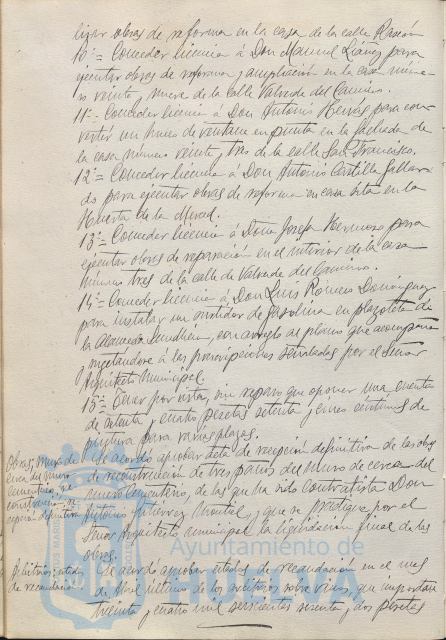 lizar obras de reforma en la casa de la calle Rascón
10ª= Conceder licencia á Don Manuel Liáñez para
ejecutar obras de reforma y ampliación en la casa núme-
ro veinte y nueve de la Calle Valverde del Camino.
11ª- Conceder licencia á Don Antonio Hervás para con-
vertir un hueco de ventana en puerta en la fachada de
la casa número veinte y tres de la calle San Francisco.
12ª= Conceder licencia á Don Antonio Castilla Gallar-
do para ejecutar obras de reforma en casa sita en la
Huerta de la Merced.
13ª- Conceder licencia á Doña Josefa Hermoso para
ejecutar obras de reparación en el interior de la casa
número tres de la calle de Valverde del Camino.
14ª- Conceder licencia á Don Luis Romero Domínguez
para instalar un surtidor de gasolina en plazoleta de
la Alameda Sundheim, con arreglo al plano que acompaña
y sujetándose á las prescripciones señaladas por el Señor
Arquitecto Municipal.
15ª- Tener por vista, sin reparo que oponer una cuenta
de setenta y cuatro pesetas setenta y cinco céntimos de
pintura para varias plazas.
Se acordó aprobar acta de recepción definitiva de las obras
de reconstrucción de tres paños del Muro de cerca del
nuevo Cementerio, de las que ha sido contratista Don
Antonio Gutierrez Montiel, y que se practique por el
Señor Arquitecto municipal la liquidación final de las
obras.
Se acordó aprobar estados de recaudación en el mes
de Abril último de los arbitrios sobre vinos, que importan
treinta y cuatro mil seiscientas sesenta y dos pesetas
Obras, muro de
cerca del nuevo
cementerio,
recepción definitiva
Arbitrios: estados
de recaudación
Ayuntamiento de
HUELVA